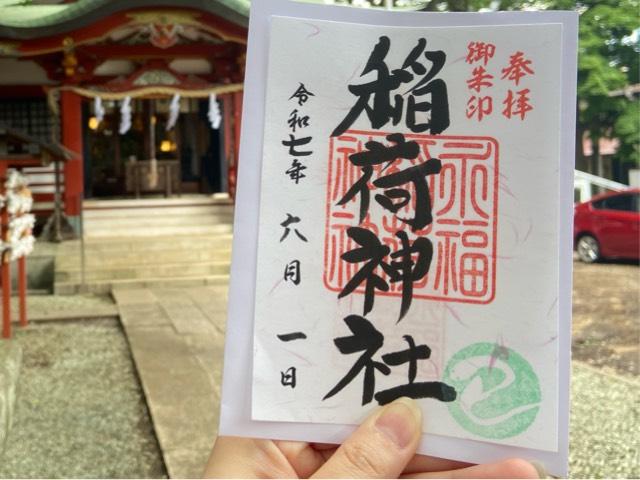 奉拝
御朱印
稲荷神社
永福
稲荷
神社
令和七年 六月 一日